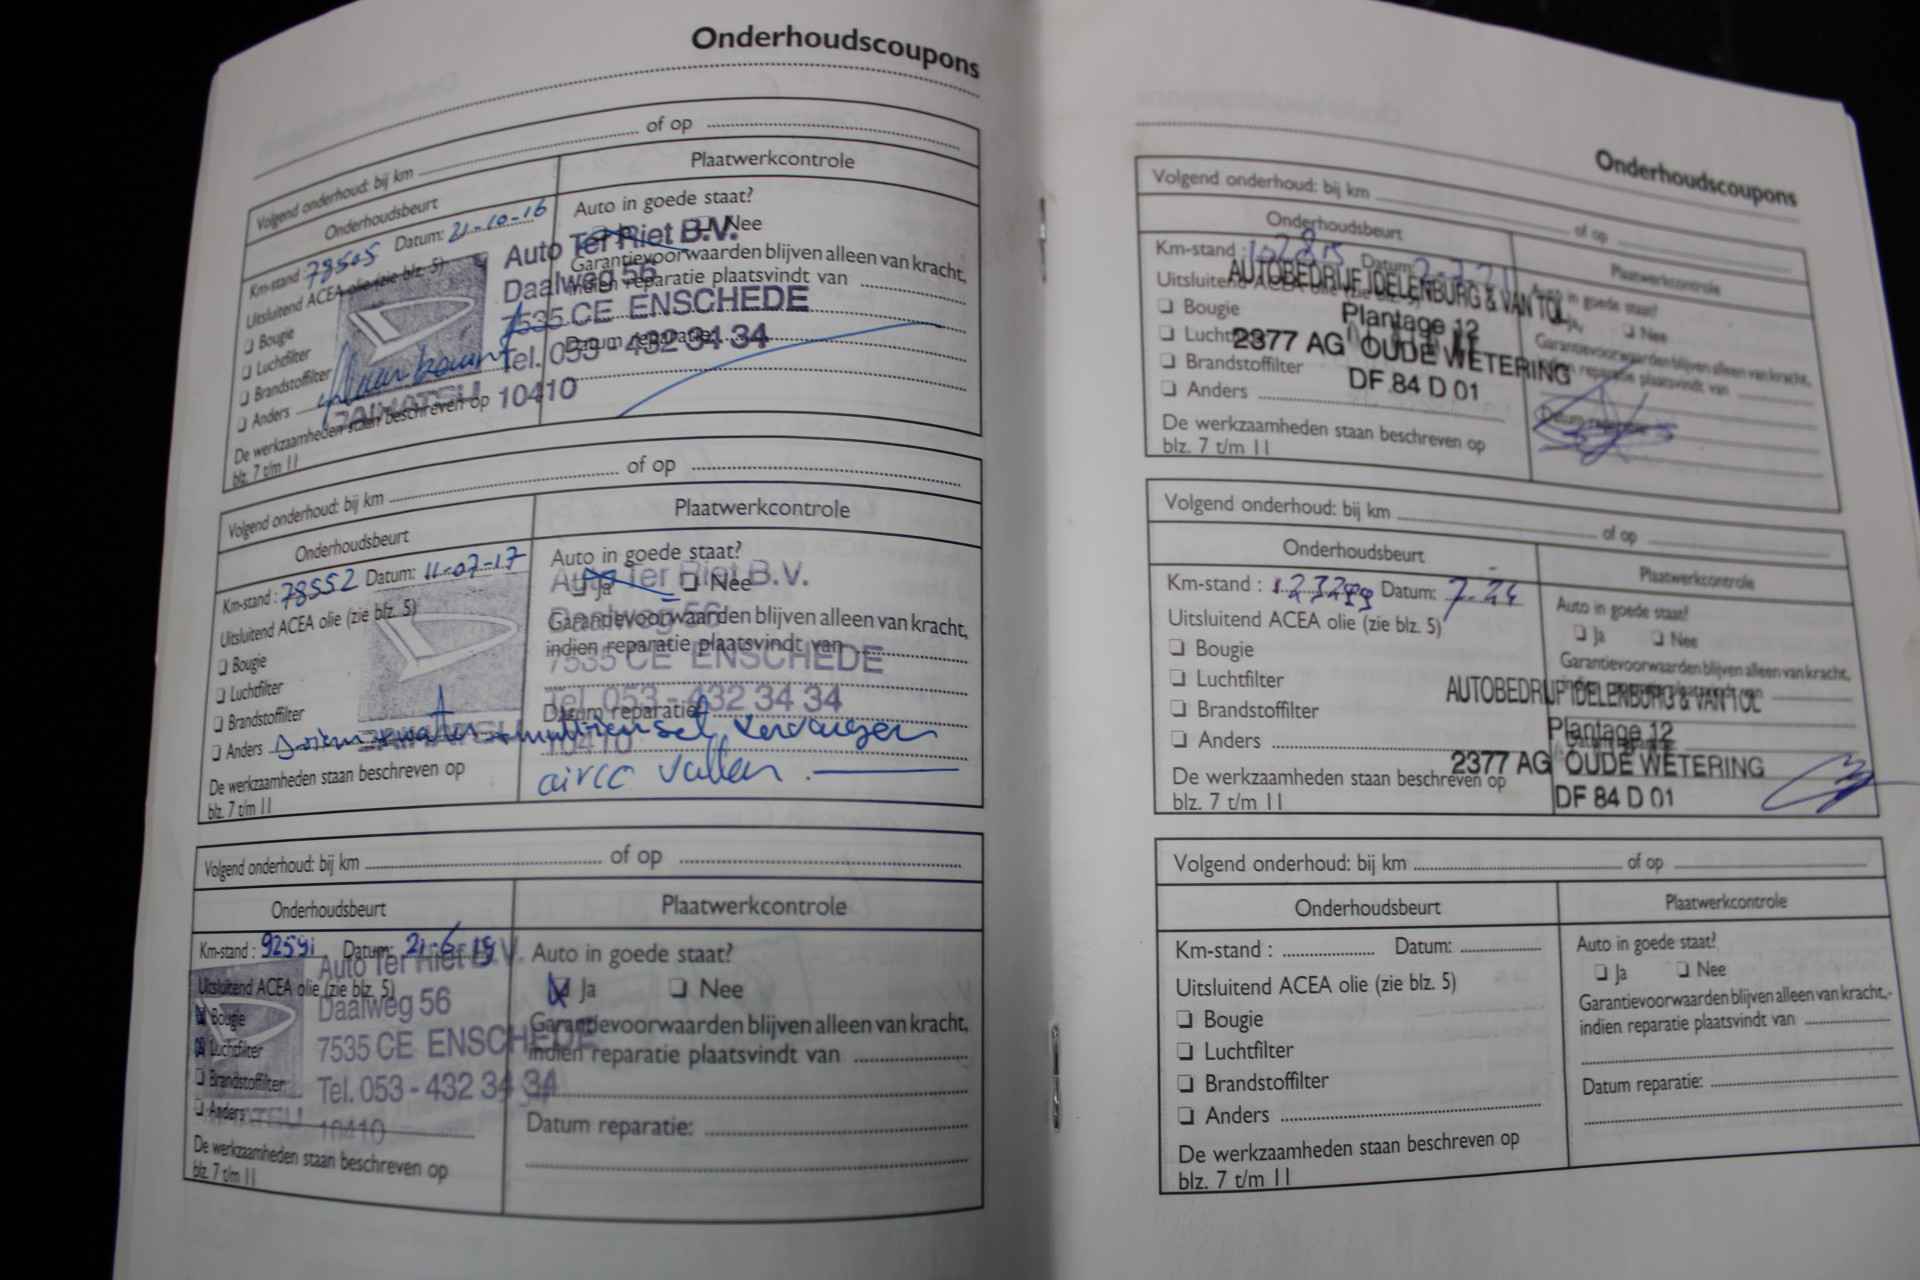 Onderhoudscoupons
Volgend onderhoud: bij km of op
Onderhoudsbeurt Plaatwerkcontrole
Km-stand : 78505 Datum: 21-10-16
Auto in goede staat?
Nee
Uitsluitend ACEA olie (zie blz. 5)
Garantievoorwaarden blijven alleen van kracht,
indien reparatie plaatsvindt van
Bougie
Luchtfilter
Datum reparatie:
Brandstoffilter
Anders
De werkzaamheden staan beschreven op
blz. 7 t/m 11
Auto Ter Riet B.V.
Daalweg 56
7535 CE ENSCHEDE
Tel. 053 - 432 34 34
10410
DAIHATSU
Volgend onderhoud: bij km of op
Onderhoudsbeurt Plaatwerkcontrole
Km-stand : 78552 Datum: 11-07-17
Auto in goede staat?
Ja Nee
Uitsluitend ACEA olie (zie blz. 5)
Garantievoorwaarden blijven alleen van kracht,
indien reparatie plaatsvindt van
Bougie
Luchtfilter
Brandstoffilter
Datum reparatie:
Anders
airco vullen.
De werkzaamheden staan beschreven op
blz. 7 t/m 11
Auto Ter Riet B.V.
Daalweg 56
7535 CE ENSCHEDE
Tel. 053 - 432 34 34
10410
DAIHATSU
Volgend onderhoud: bij km of op
Onderhoudsbeurt Plaatwerkcontrole
Km-stand : 92591 Datum: 21-6-19
Auto in goede staat?
Ja Nee
Uitsluitend ACEA olie (zie blz. 5)
Garantievoorwaarden blijven alleen van kracht,
indien reparatie plaatsvindt van
Bougie
Luchtfilter
Brandstoffilter
Anders
Datum reparatie:
De werkzaamheden staan beschreven op
blz. 7 t/m 11
Auto Ter Riet B.V.
Daalweg 56
7535 CE ENSCHEDE
Tel. 053 - 432 34 34
10410
Onderhoudscoupons
Volgend onderhoud: bij km of op
Onderhoudsbeurt Plaatwerkcontrole
Km-stand : 102815 Datum:
Auto in goede staat?
Ja Nee
Uitsluitend ACEA olie (zie blz. 5)
Garantievoorwaarden blijven alleen van kracht,
indien reparatie plaatsvindt van
Bougie
Luchtfilter
Brandstoffilter
Anders
Datum reparatie:
De werkzaamheden staan beschreven op
blz. 7 t/m 11
AUTOBEDRIJF IDELENBURG & VAN TOL
Plantage 12
2377 AG OUDE WETERING
DF 84 D 01
Volgend onderhoud: bij km of op
Onderhoudsbeurt Plaatwerkcontrole
Km-stand : Datum: 7-24
Auto in goede staat?
Ja Nee
Uitsluitend ACEA olie (zie blz. 5)
Garantievoorwaarden blijven alleen van kracht,
Bougie
Luchtfilter
Brandstoffilter
Anders
De werkzaamheden staan beschreven op
blz. 7 t/m 11
AUTOBEDRIJF IDELENBURG & VAN TOL
Plantage 12
2377 AG OUDE WETERING
DF 84 D 01
Volgend onderhoud: bij km of op
Onderhoudsbeurt Plaatwerkcontrole
Km-stand : Datum:
Auto in goede staat?
Ja Nee
Uitsluitend ACEA olie (zie blz. 5)
Garantievoorwaarden blijven alleen van kracht,-
indien reparatie plaatsvindt van
Bougie
Luchtfilter
Brandstoffilter
Anders
Datum reparatie:
De werkzaamheden staan beschreven op
blz. 7 t/m 11